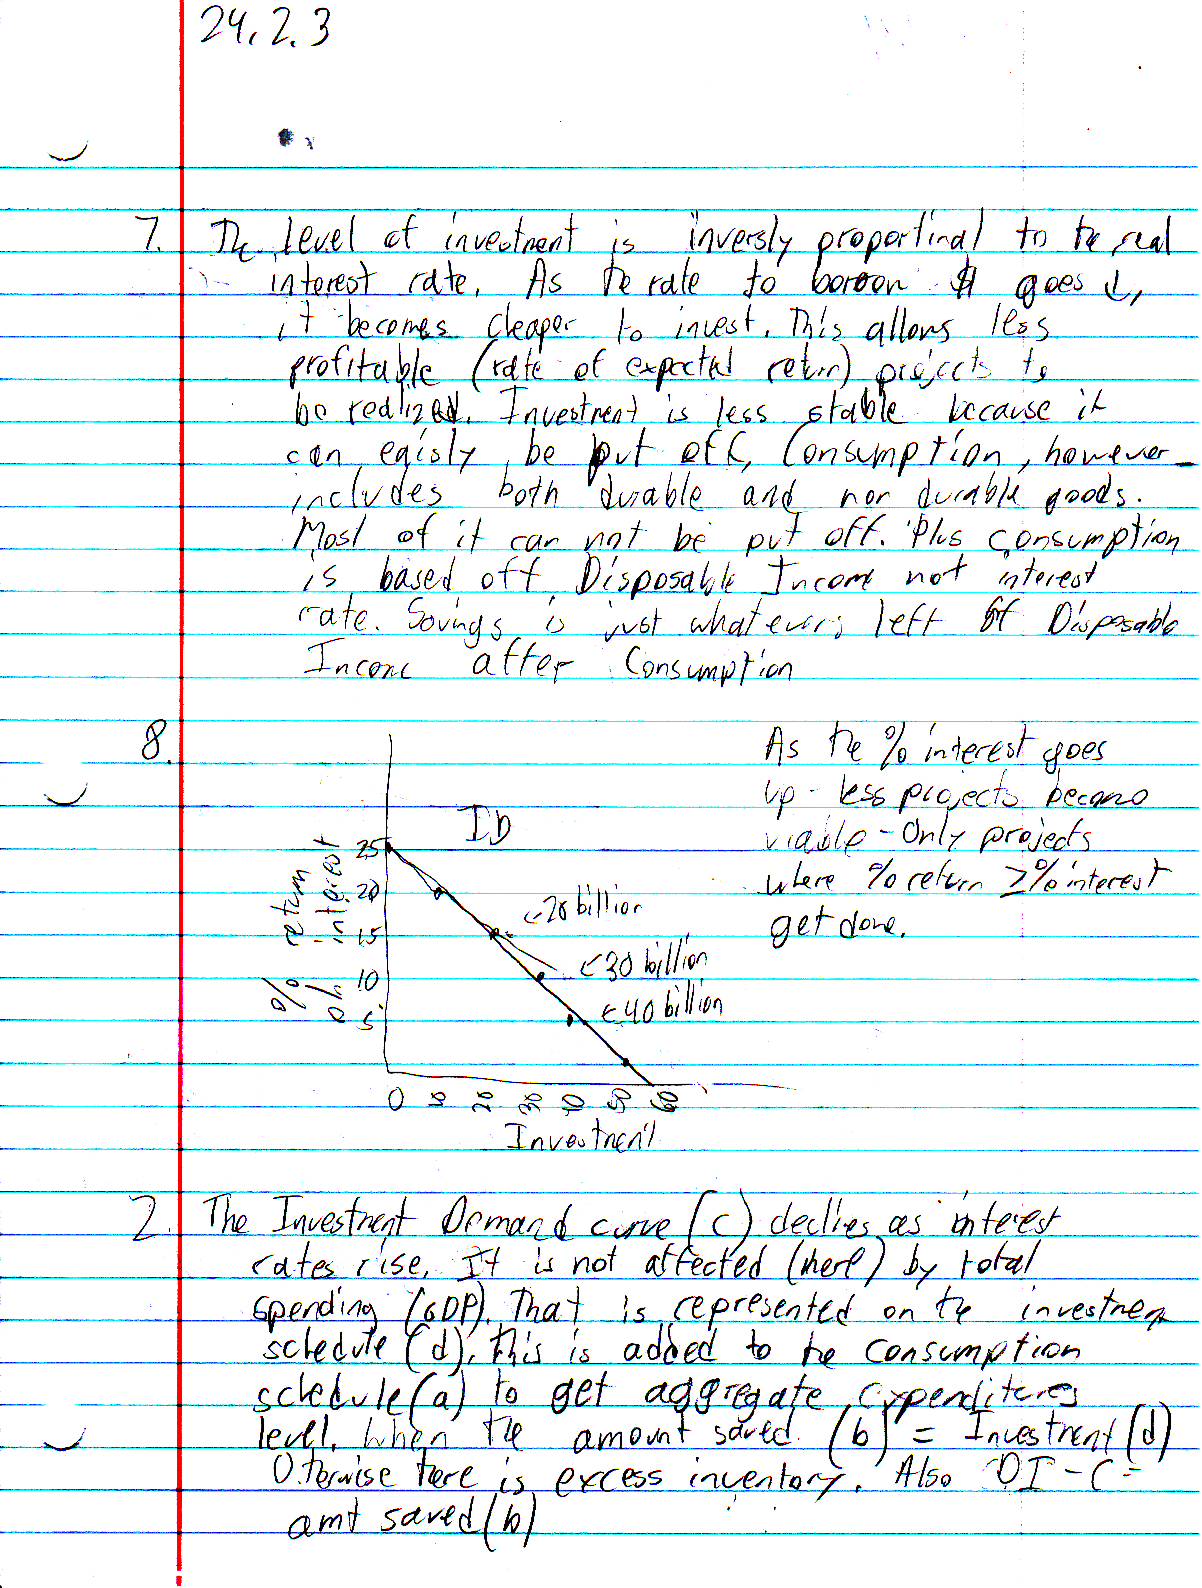 24.2.3
7. The level of investment is inversly proportinal to the real
interest rate. As the rate to boroon $ goes ↓,
it becomes cleaper to invest. This allows less
profitable (rate of expected return) projects to
be realized. Investment is less stable because it
can eaisly be put off. Consumption, however
includes both durable and non durable goods.
Most of it can not be put off. Plus consumption
is based off Disposable Income not interest
rate. Savings is just whatevers left of Disposable
Income after Consumption
8.
As the % interest goes
up - less projects become
viable - Only projects
where % return ≥ % interest
get done.
ID
% return
interest
25
20
15
10
5
<-20 billion
<30 billion
<40 billion
0 10 20 30 40 50 60
Investment
2. The Investment Demand curve (c) declies as interest
rates rise. It is not affected (here) by total
spending (GDP). That is represented on the investmen
schedule (d). This is added to the consumption
schedule (a) to get aggregate expenditures
level. When the amount saved (b) = Investment (d)
Otherwise there is excess inventory. Also DI - C =
amt saved (b)